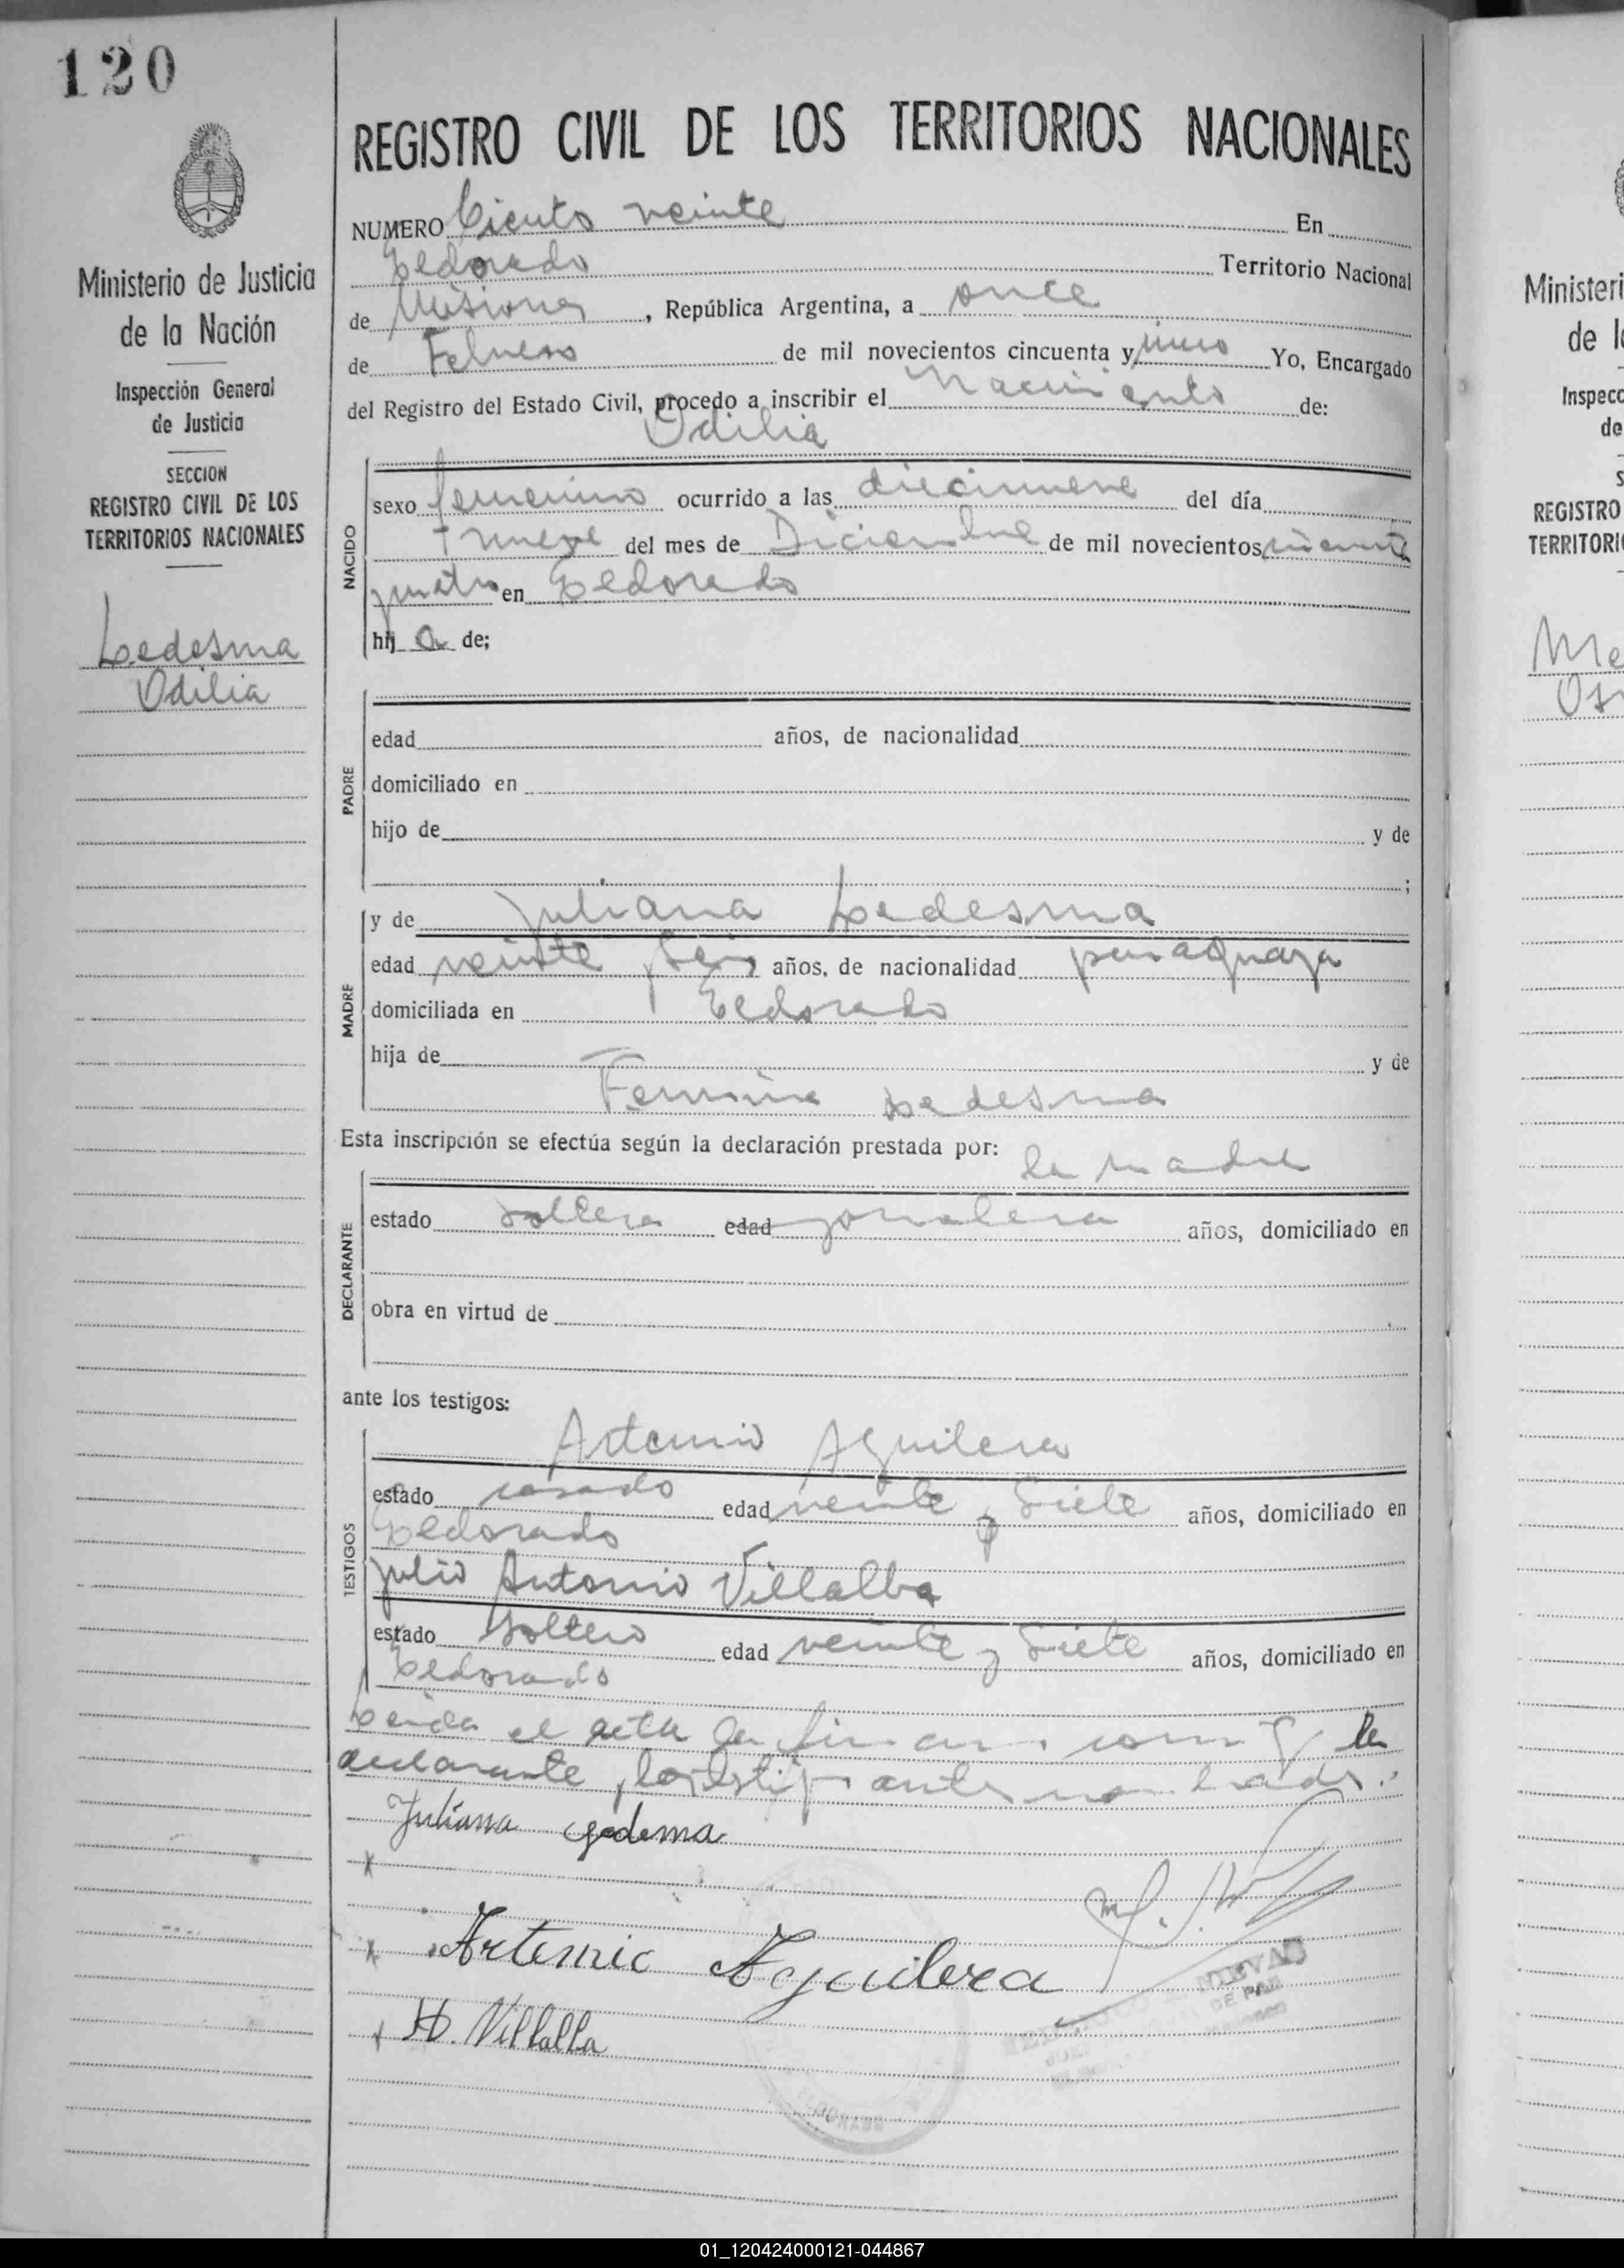 120
Ministerio de Justicia
de la Nación
Inspección General
de Justicia
SECCION
REGISTRO CIVIL DE LOS
TERRITORIOS NACIONALES
Ledesma
Odilia
REGISTRO CIVIL DE LOS TERRITORIOS NACIONALES
NUMERO Ciento veinte En
Eldorado Territorio Nacional
de Misiones, República Argentina, a once
de Febrero de mil novecientos cincuenta y uno Yo, Encargado
del Registro del Estado Civil, procedo a inscribir el Nacimiento de:
Odilia
NACIDO
sexo femenino ocurrido a las diecinueve del día
nueve del mes de Diciembre de mil novecientos
cuatro en Eldorado
hij a de;
PADRE
edad años, de nacionalidad
domiciliado en
hijo de y de
;
MADRE
y de Juliana Ledesma
edad veinte y seis años, de nacionalidad paraguaya
domiciliada en Eldorado
hija de y de
Fermina Ledesma
Esta inscripción se efectúa según la declaración prestada por: la madre
DECLARANTE
estado soltera edad jornalera años, domiciliado en
obra en virtud de
ante los testigos:
TESTIGOS
Artemio Aguilera
estado casado edad veinte y siete años, domiciliado en
Eldorado
Julio Antonio Villalba
estado soltero edad veinte y siete años, domiciliado en
Eldorado
Leida el acta la firman la
declarante, los testigos antes
Juliana Ledesma
x
x Artemio Aguilera
x Villalba
DE PAZ
Ministeri
de l
Inspecc
de
S
REGISTRO
TERRITORI
Me
Os
01_120424000121-044867